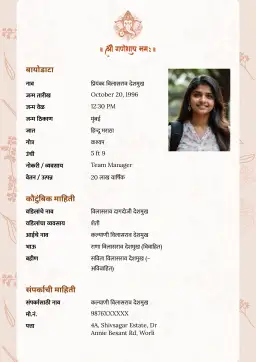 ॥ श्री गणेशाय नमः ॥
बायोडाटा
नाव प्रियंका विलासराव देशमुख
जन्म तारीख October 20, 1996
जन्म वेळ 12:30 PM
जन्म ठिकाण मुंबई
जात हिन्दू मराठा
गोत्र कश्यप
उंची 5 ft 9
नोकरी / व्यवसाय Team Manager
वेतन / उत्पन्न 20 लाख वार्षिक
कौटुंबिक माहिती
वडिलांचे नाव विलासराव दामोदजी देशमुख
वडिलांचा व्यवसाय शेती
आईचे नाव कल्याणी विलासराव देशमुख
भाऊ राणा विलासराव देशमुख (विवाहित)
बहीण सविता विलासराव देशमुख (–
अविवाहित)
संपर्काची माहिती
संपर्कासाठी नाव कल्याणी विलासराव देशमुख
मो.नं. 9876XXXXXX
पत्ता 4A, Shivsagar Estate, Dr
Annie Besant Rd, Worli